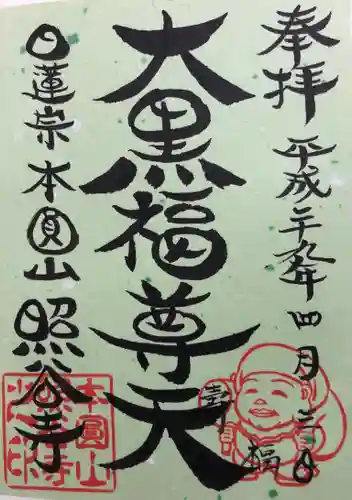 奉拝 平成二十九年四月三日
大黒福尊天
日蓮宗 本圓山 照谷寺
寿
福
本圓山